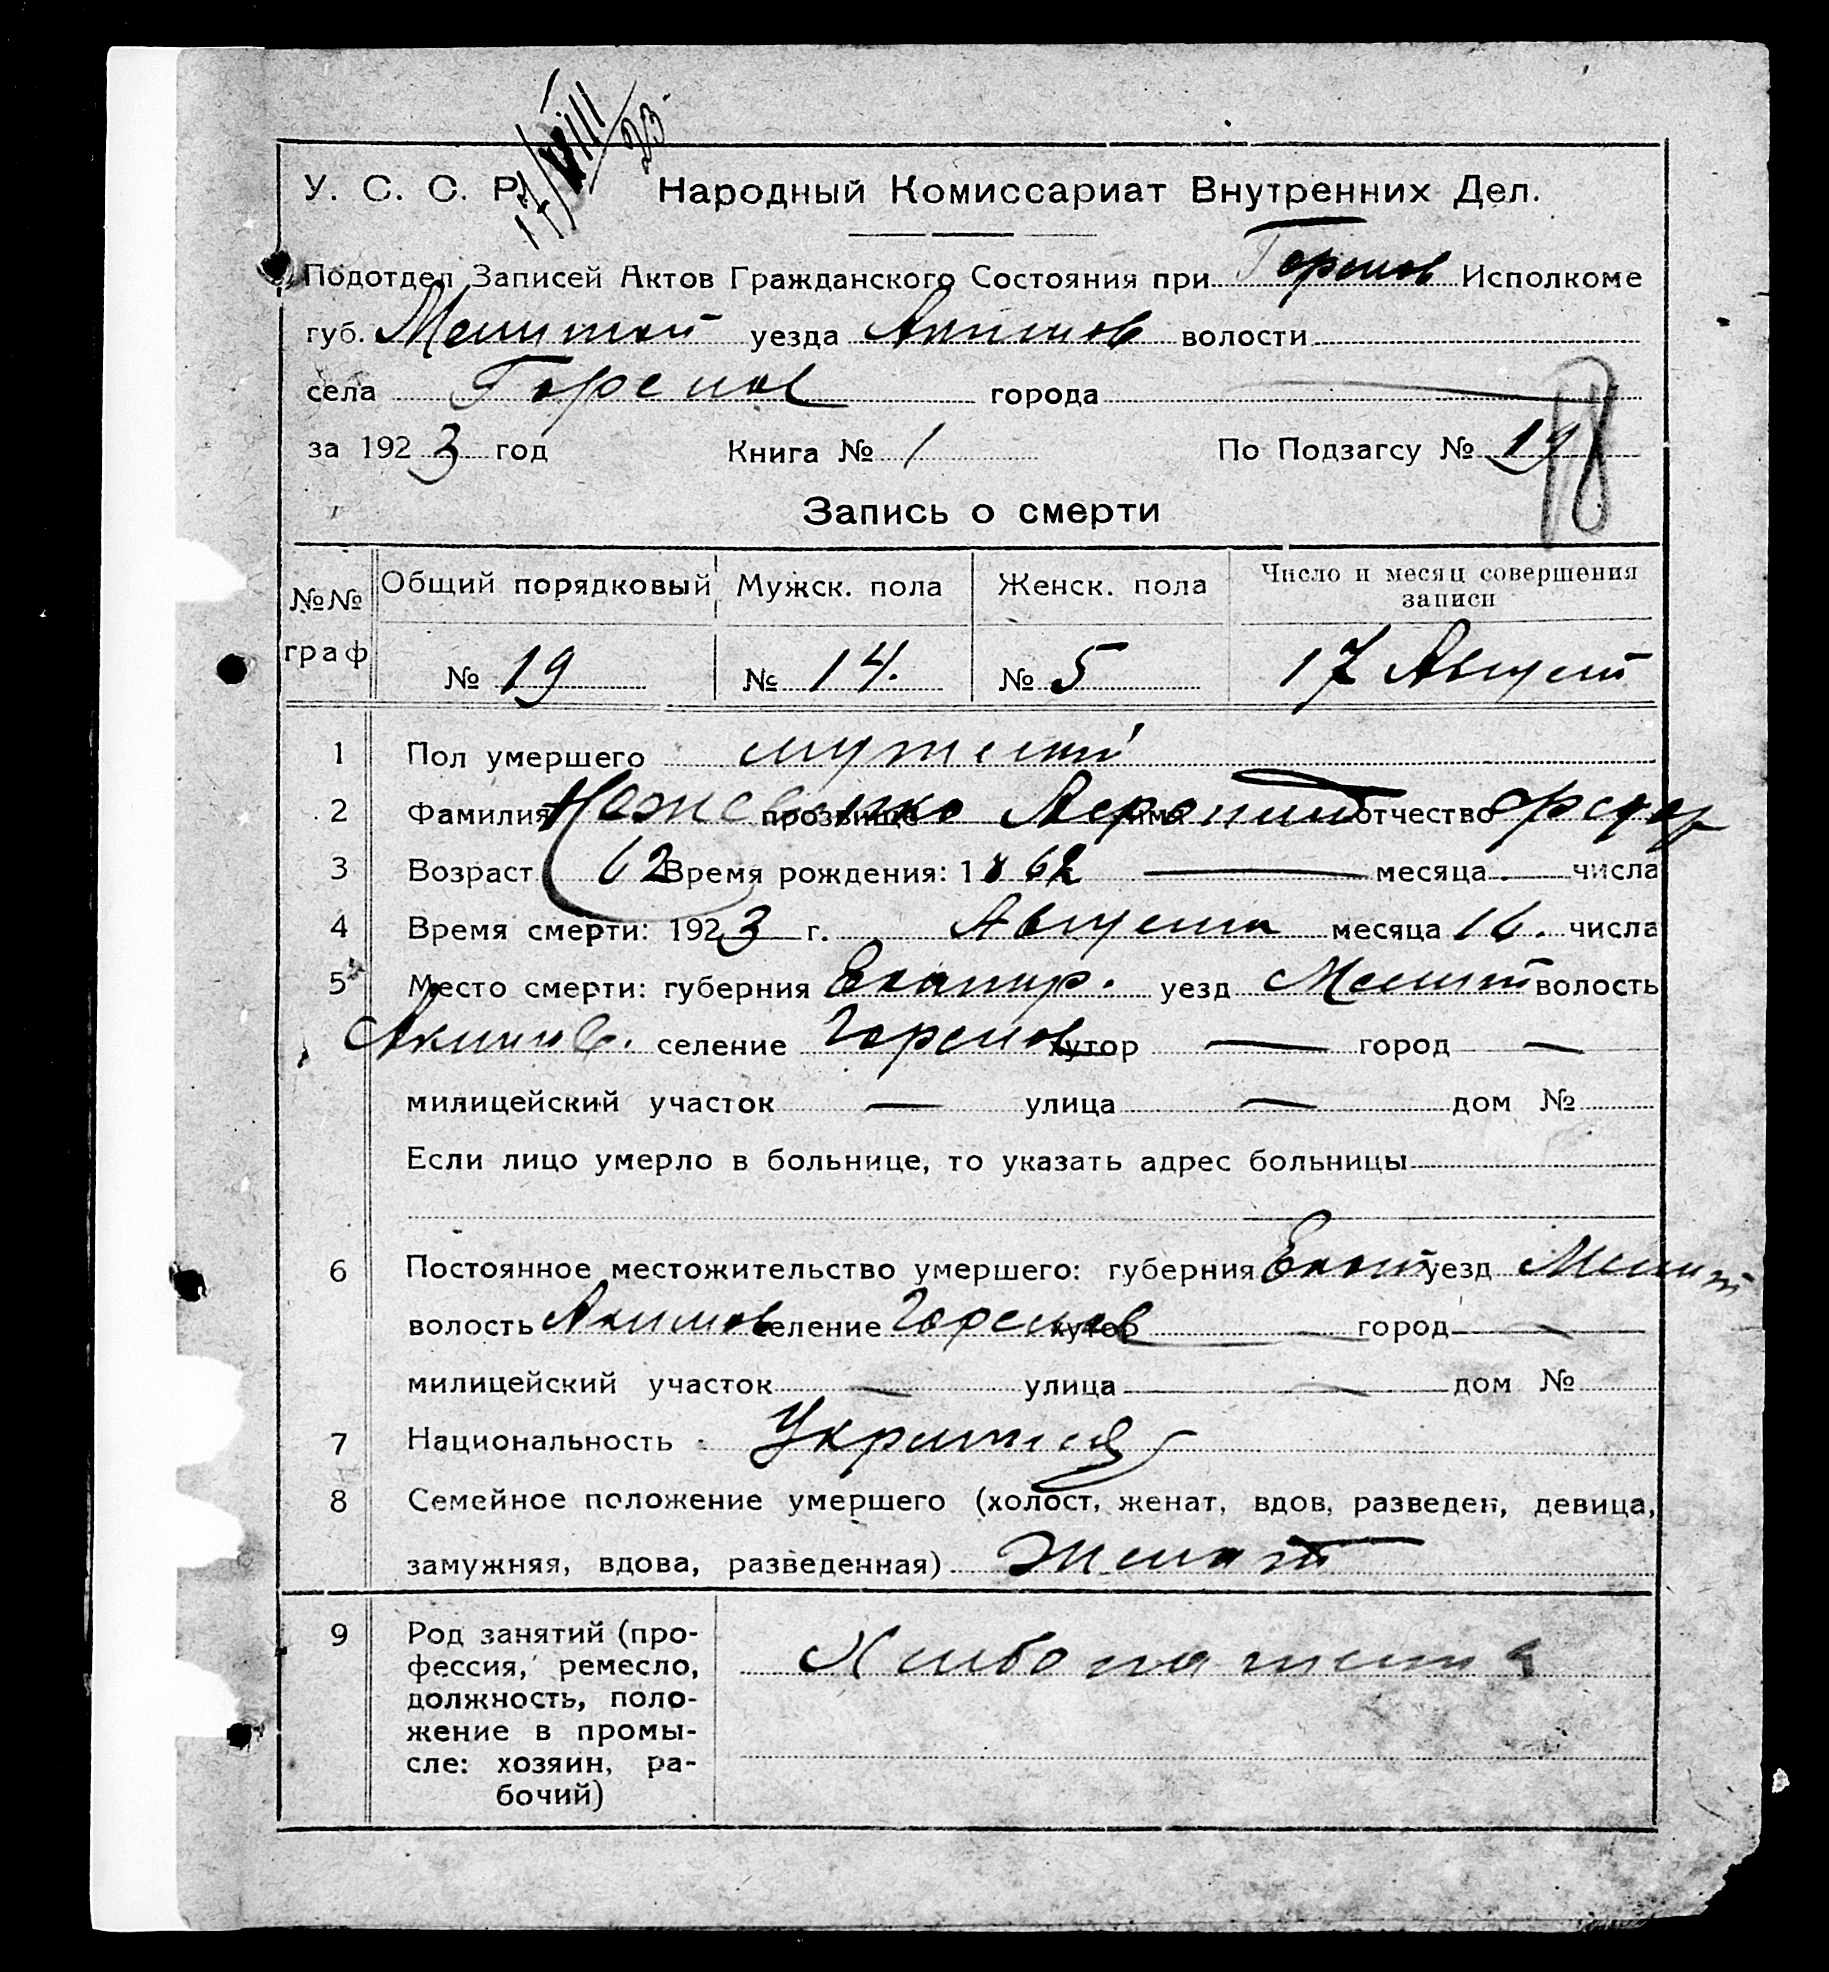 17/VIII 23.
У. С. С. Р. Народный Комиссариат Внутренних Дел.
Подотдел Записей Актов Гражданского Состояния при Горелов Исполкоме
губ. Мелитоп уезда Акимов волости
села Горелов города
за 1923 год Книга № 1 По Подзагсу № 19
98
Запись о смерти
№№ граф Общий порядковый Мужск. пола Женск. пола Число и месяц совершения записи
№ 19 № 14. № 5 17 Август
1 Пол умершего мужской
2 Фамилия прозвище имя отчество Федор
3 Возраст 62 Время рождения: 1862 — месяца числа
4 Время смерти: 1923 г. Августа месяца 16. числа
5 Место смерти: губерния Екатер. уезд Мелит волость
Акимов. селение Горелов хутор — город —
милицейский участок — улица — дом №
Если лицо умерло в больнице, то указать адрес больницы
6 Постоянное местожительство умершего: губерния Екат уезд Мелит
волость Акимов селение Горелов хутор — город —
милицейский участок — улица — дом №
7 Национальность
8 Семейное положение умершего (холост, женат, вдов, разведен, девица,
замужняя, вдова, разведенная) Женат
9 Род занятий (про-
фессия, ремесло,
должность, поло-
жение в промы-
сле: хозяин, ра-
бочий)